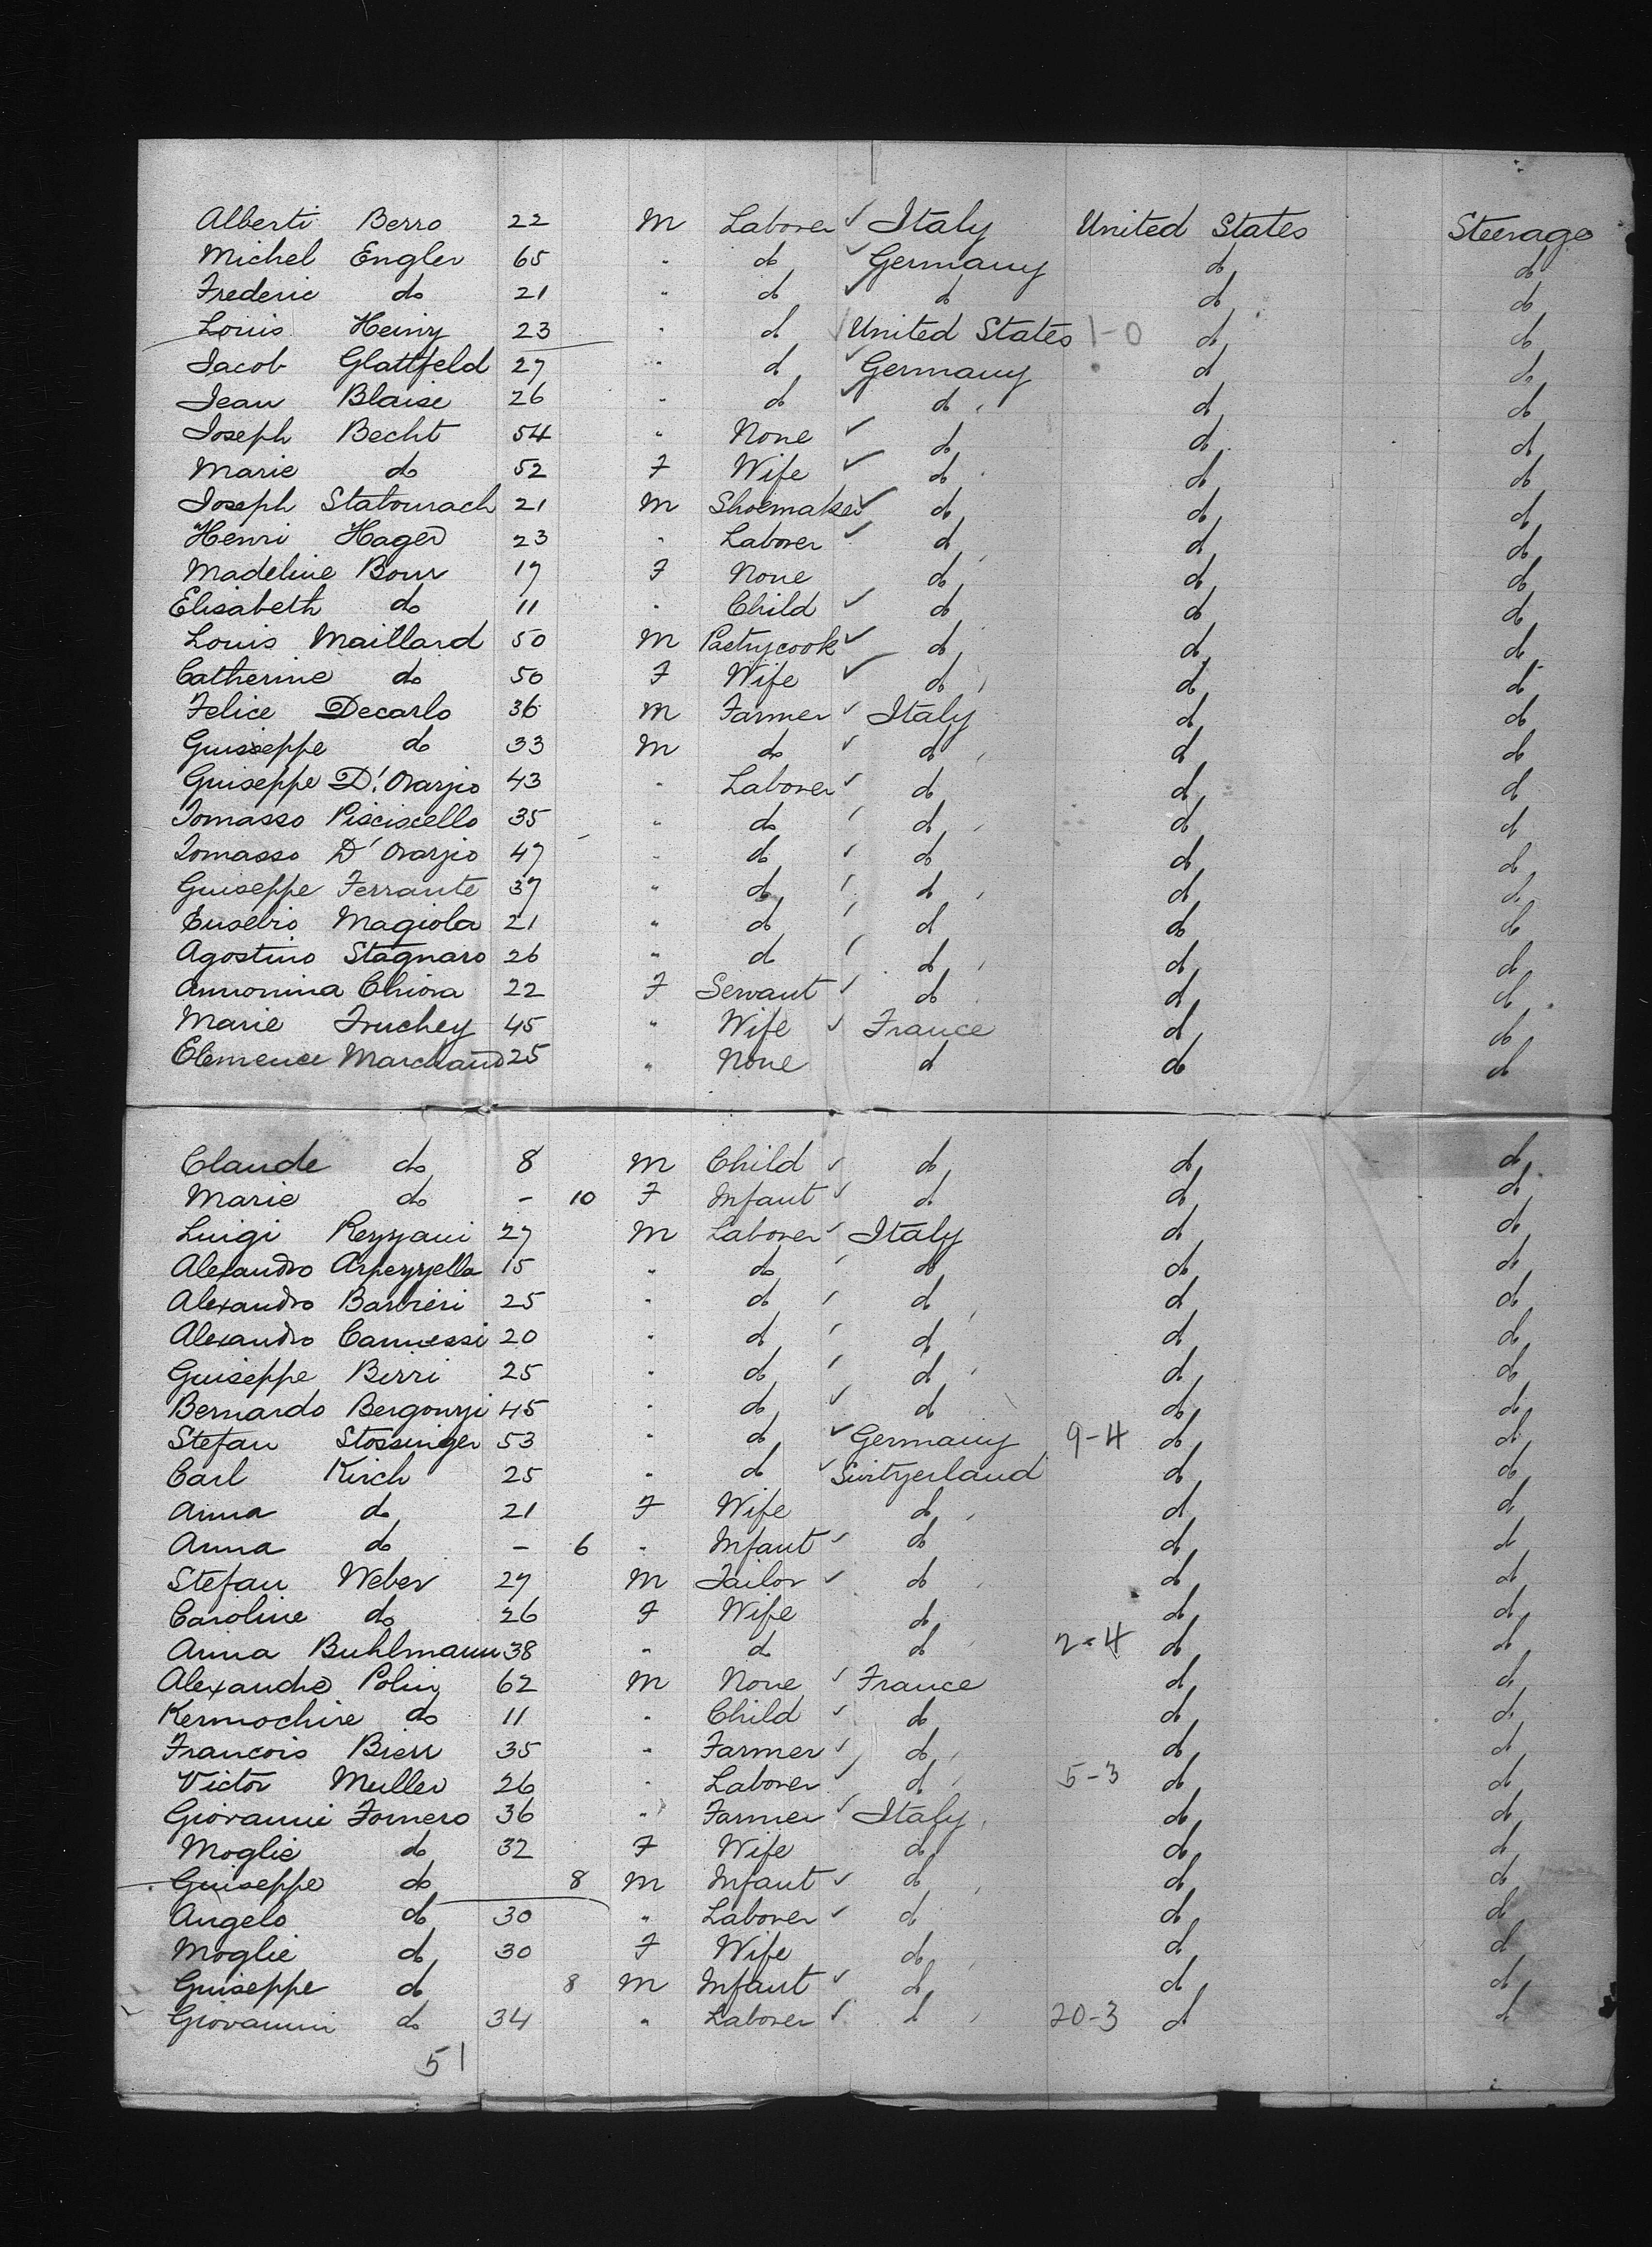 Alberti Berro 22 M Laborer ✓ Italy United States Steerage
Michel Engler 65 " do ✓ Germany do do
Frederic do 21 " do ✓ do do do
Louis Heiny 23 " do United States 1-0 do do
Jacob Glattfeld 27 " do ✓ Germany do do
Jean Blaise 26 " do ✓ do do do
Joseph Becht 54 " None ✓ do do do
Marie do 52 F Wife ✓ do do do
Joseph Statourach 21 M Shoemaker ✓ do do do
Henri Hager 23 " Laborer ✓ do do do
Madeline Bour 17 F None do do do
Elisabeth do 11 " Child ✓ do do do
Louis Maillard 50 M Pastrycook ✓ do do do
Catherine do 50 F Wife ✓ do do do
Felice Decarlo 36 M Farmer ✓ Italy do do
Guiseppe do 33 M do ✓ do do do
Guiseppe D'Orazio 43 " Laborer ✓ do do do
Tomasso Pisciscello 35 " do ✓ do do do
Tomasso D'Orazio 47 " do ✓ do do do
Guiseppe Ferrante 37 " do ✓ do do do
Eusebio Magiola 21 " do ✓ do do do
Agostino Stagnaro 26 " do ✓ do do do
Annonina Chiora 22 F Servant ✓ do do do
Marie Truchey 45 " Wife ✓ France do do
Clemence Marchand 25 " None do do do
Claude do 8 M Child ✓ do do do
Marie do - 10 F Infant ✓ do do do
Luigi Rezzani 27 M Laborer ✓ Italy do do
Alexandro Arpezzella 15 " do ✓ do do do
Alexandro Barbieri 25 " do ✓ do do do
Alexandro Camessi 20 " do ✓ do do do
Guiseppe Birri 25 " do ✓ do do do
Bernardo Bergonzi 45 " do ✓ do do do
Stefan Stossinger 53 " do ✓ Germany 9-4 do do
Carl Kirch 25 " do ✓ Switzerland do do
Anna do 21 F Wife do do do
Anna do - 6 " Infant ✓ do do do
Stefan Weber 27 M Tailor ✓ do do do
Caroline do 26 F Wife do do do
Anna Buhlmann 38 " do do 2-4 do do
Alexandre Polin 62 M None ✓ France do do
Kermochire do 11 " Child ✓ do do do
Francois Bierr 35 " Farmer ✓ do do do
Victor Muller 26 " Laborer ✓ do 5-3 do do
Giovanni Fornero 36 " Farmer ✓ Italy do do
Moglie do 32 F Wife do do do
Guiseppe do 8 M Infant ✓ do do do
Angelo do 30 " Laborer ✓ do do do
Moglie do 30 F Wife do do do
Guiseppe do 8 M Infant ✓ do do do
Giovanni do 34 " Laborer ✓ do 20-3 do do
51